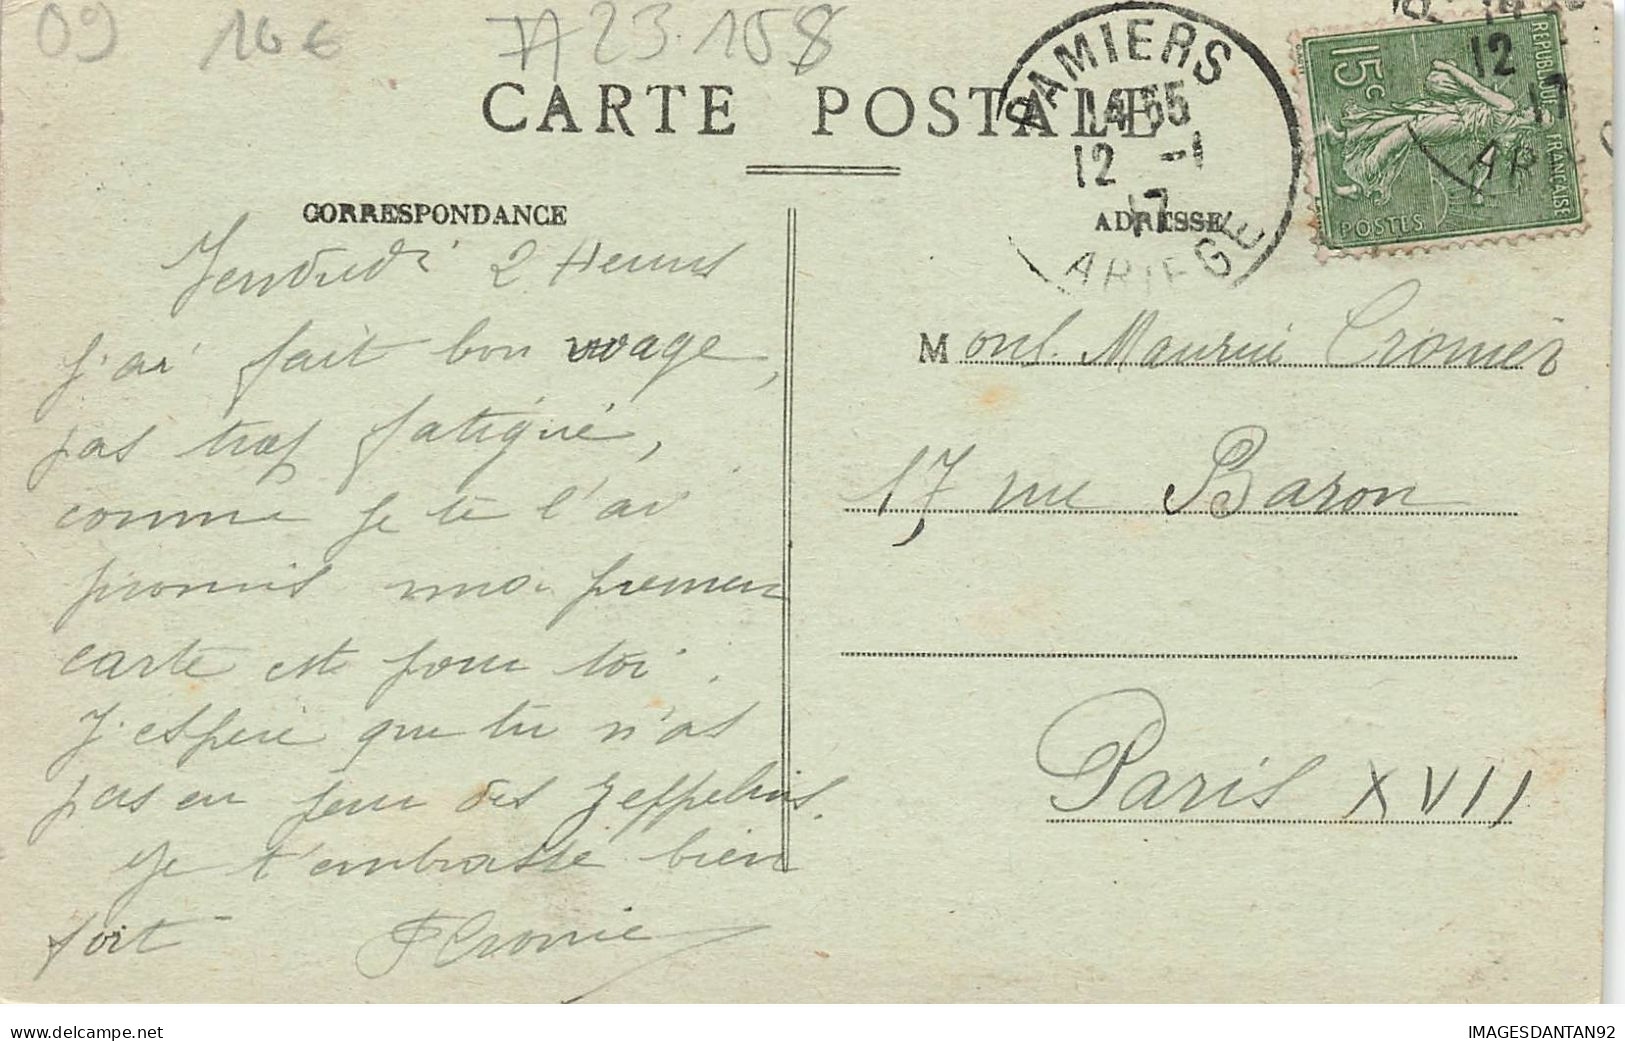 09 16€ A23.158
CARTE POSTALE
PAMIERS
14 55
12 -1
17
ARIEGE
REPUBLIQUE FRANÇAISE
15c
POSTES
12
17
AR
CORRESPONDANCE
ADRESSE
Vendredi 2 Heures
j'ai fait bon voage,
pas trop fatigué,
comme je te l'ai
promis ma premier
carte est pour toi.
J'espère que tu n'as
pas eu peur des zeppelins.
Je t'embrasse bien
fort
Mons. Maurice
17 rue Baron
Paris XVII
www.delcampe.net
IMAGESDANTAN92